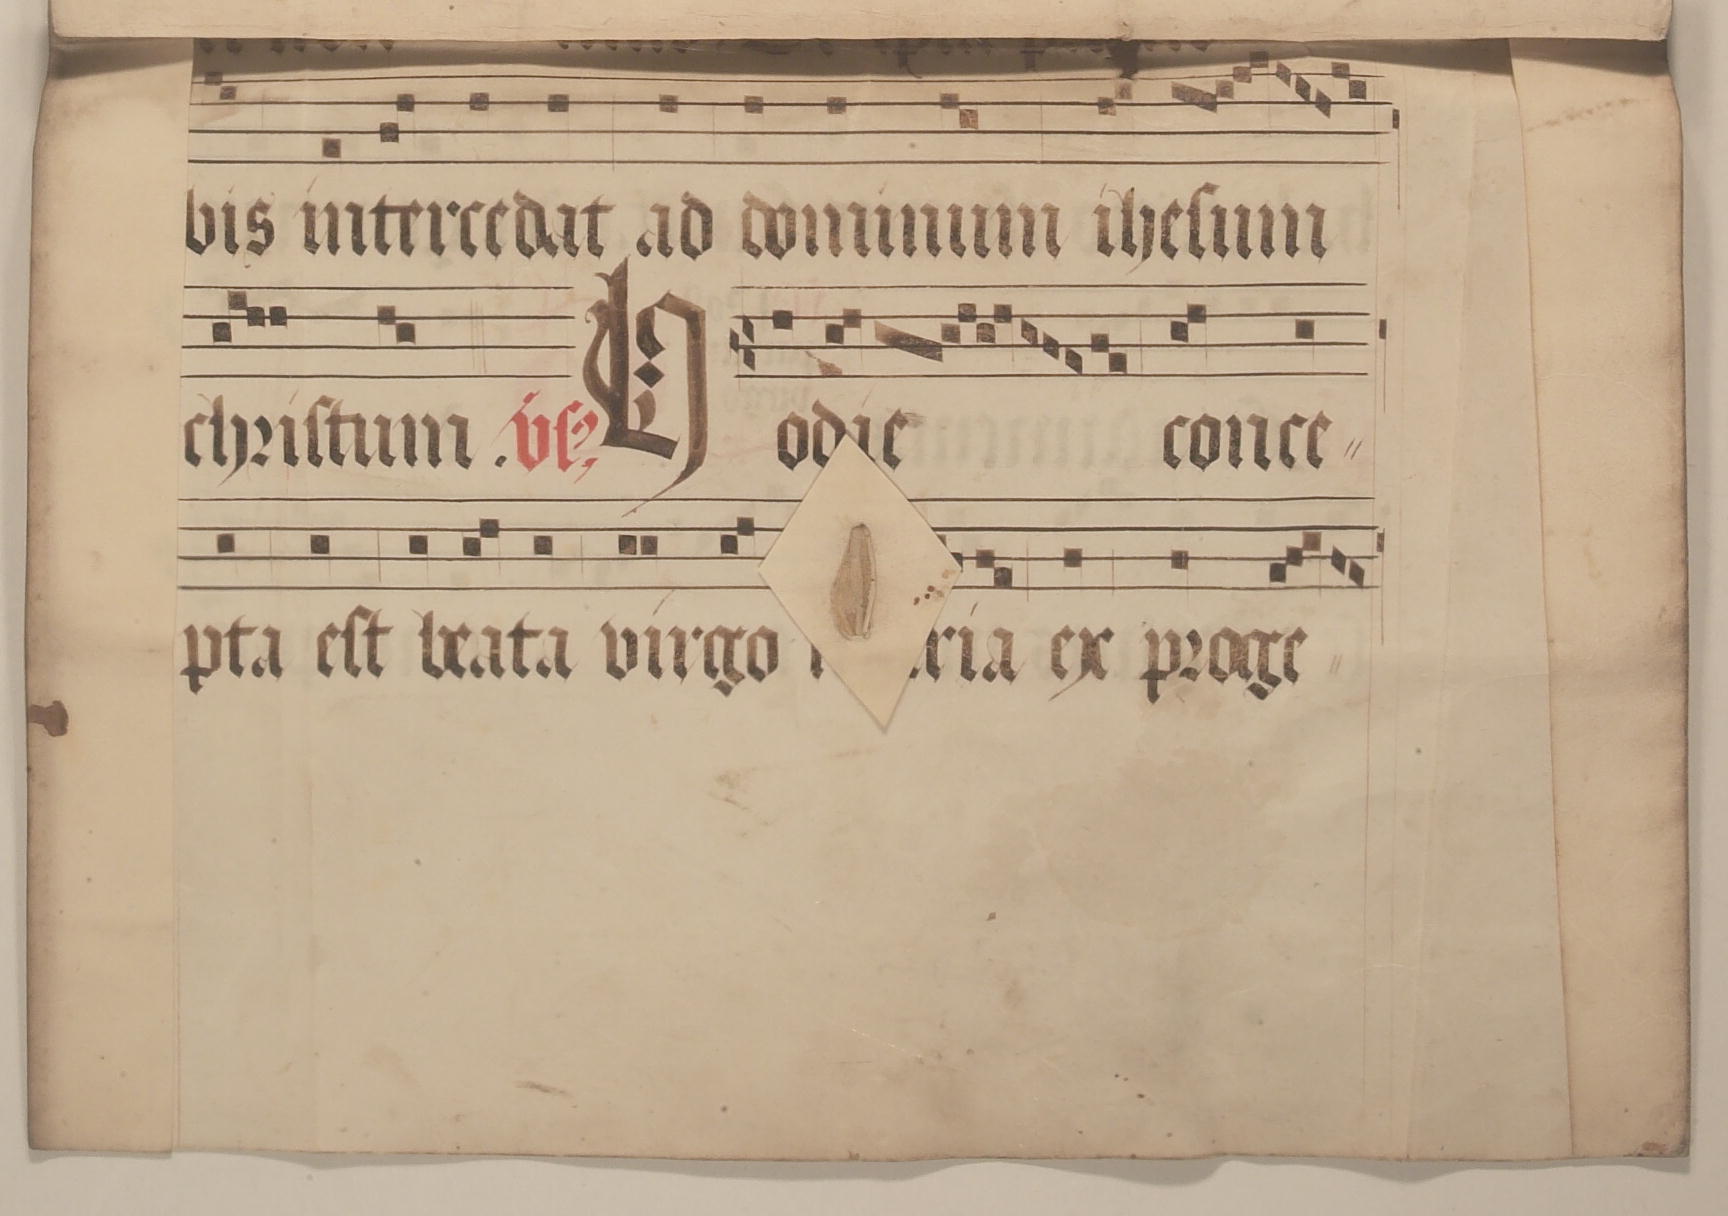 bis intercedat ad dominum ihesum
christum .vs. Hodie conce〃
pta est beata virgo ria ex proge〃